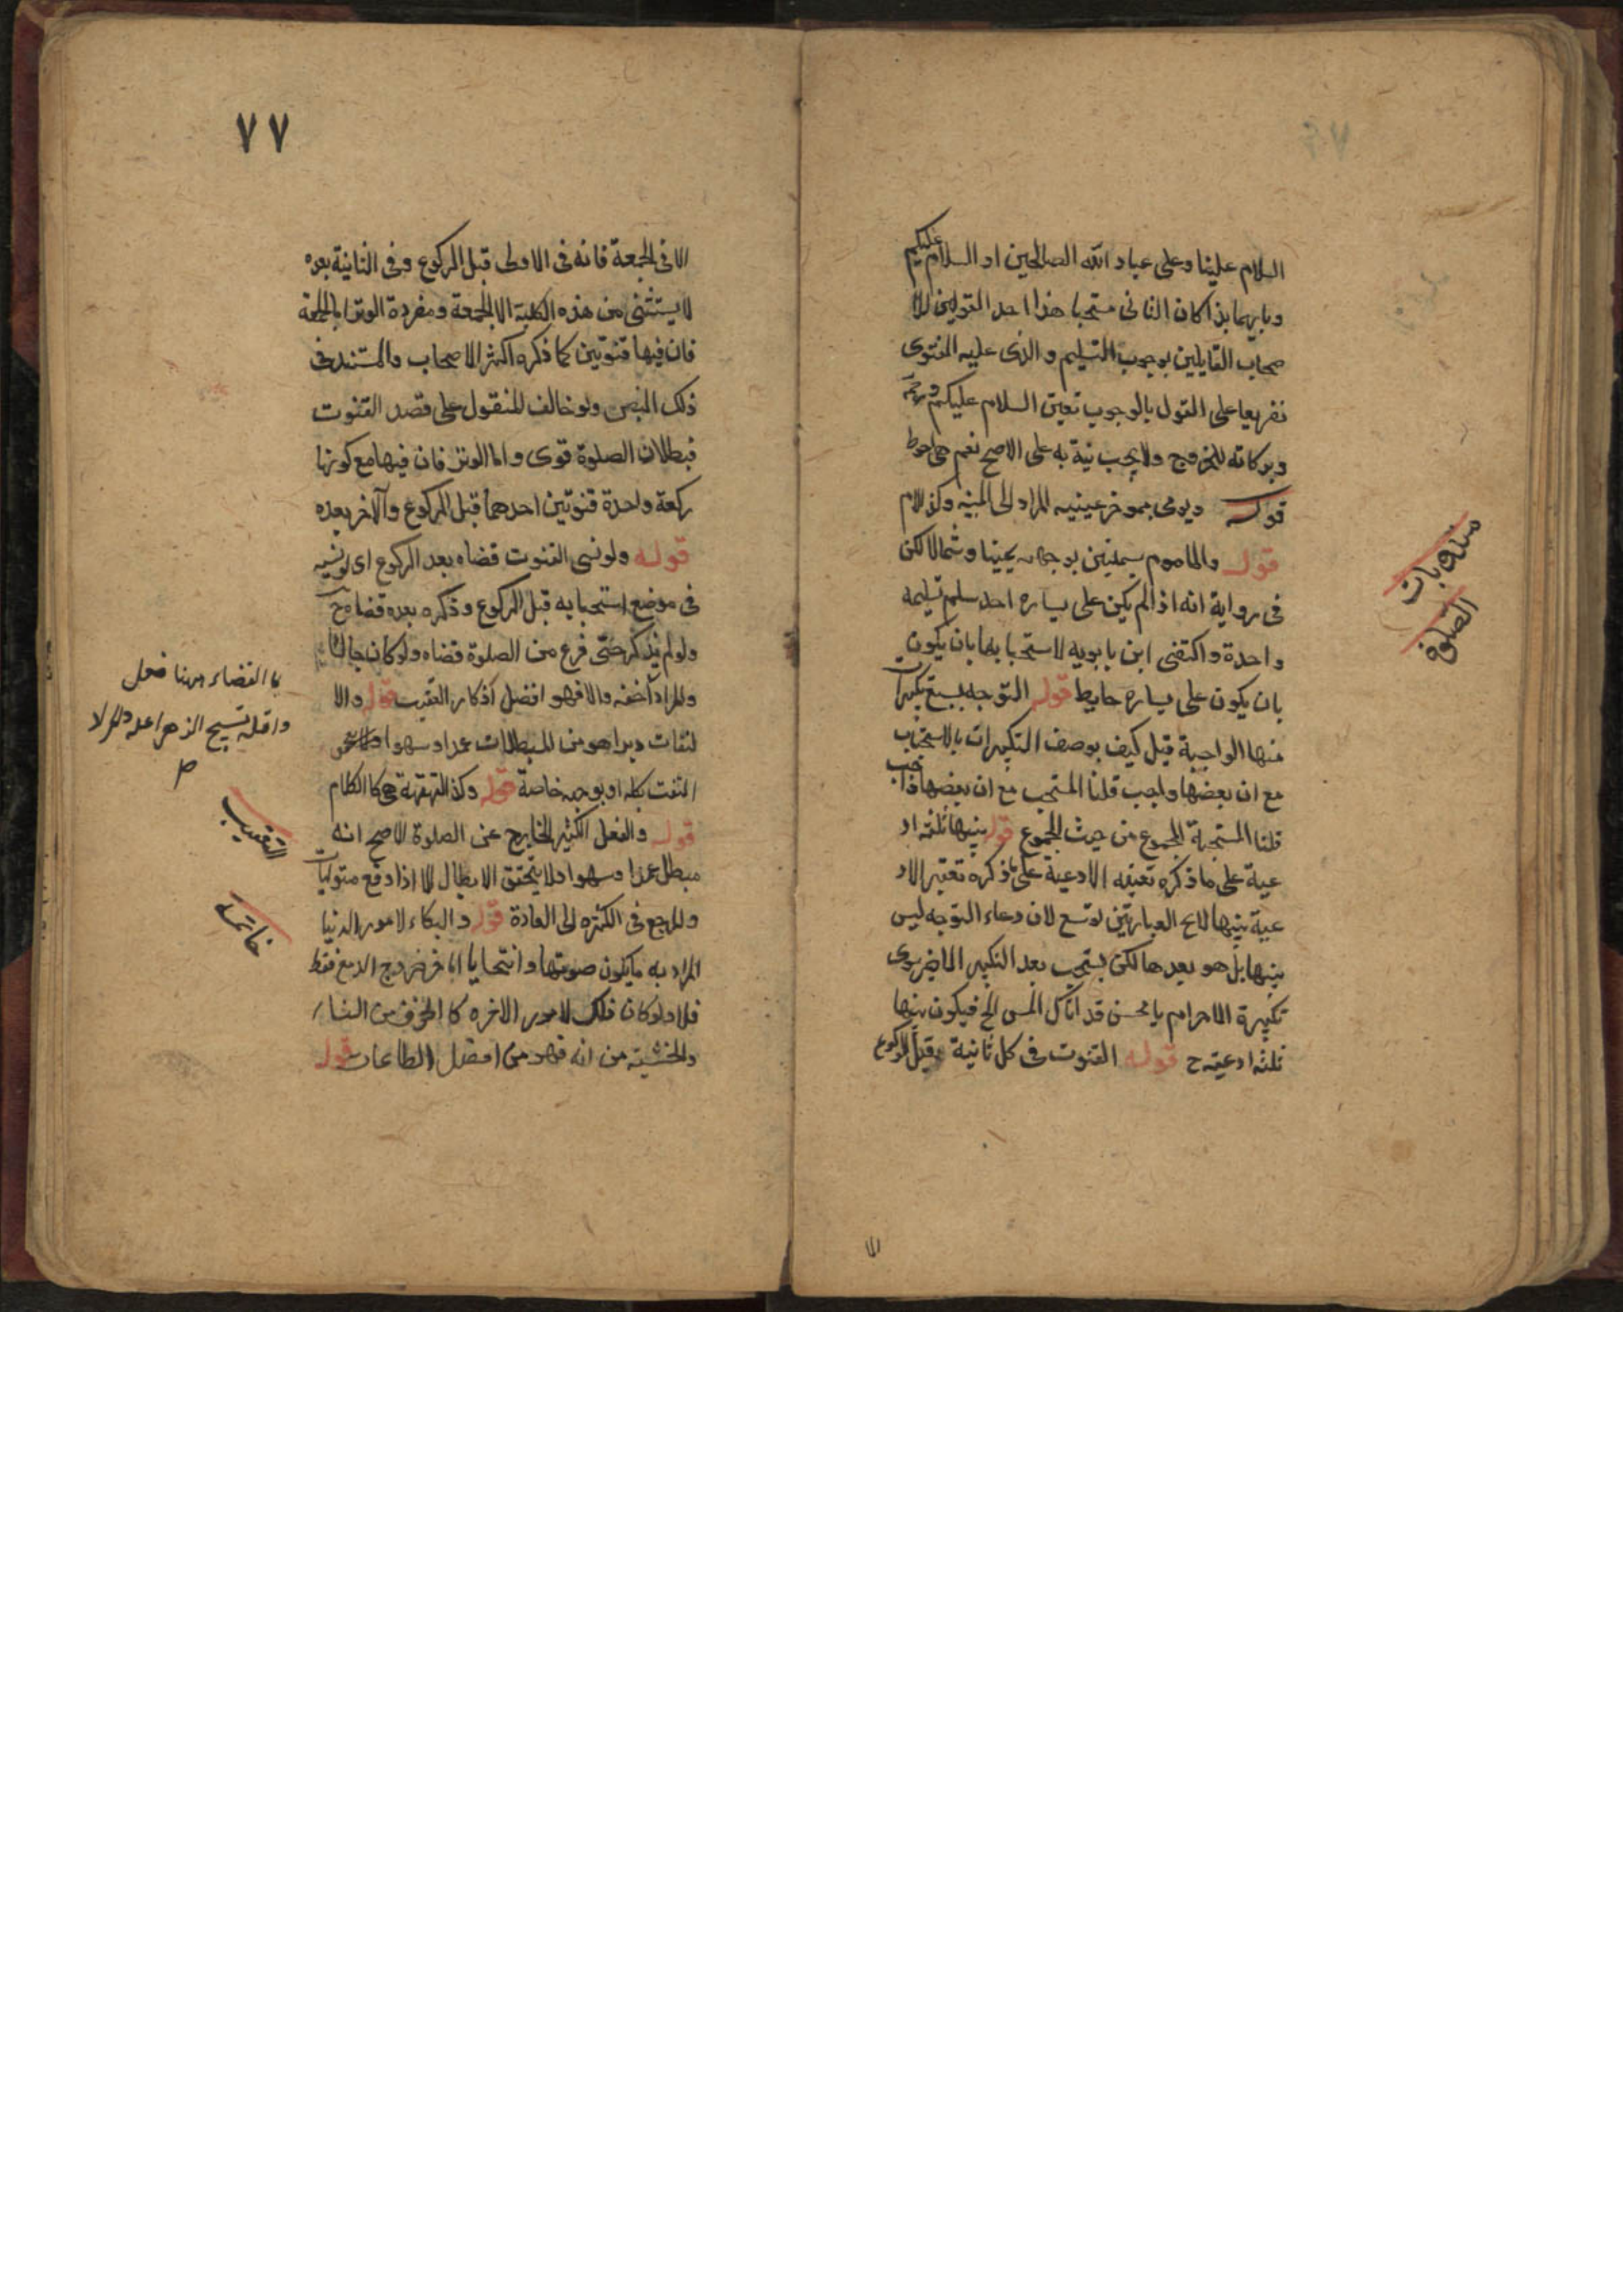 السلام علينا وعلى عباد الله الصالحين او السلام عليكم
وبايهما بدا كان الثانى مستحبا هذا احد القولين للا
صحاب القايلين بوجوب التسليم والذى عليه الفتوى
تفريعا على القول بالوجوب تعين السلام عليكم ورحمة
وبركاته للخروج ولا يجب نية به على الاصح نعم هى احوط
قوله ويومى بموخر عينيه المراد الى يمينه وكذا الامام
قوله والماموم تسليمتين بوجهه يمينا وشمالا لكن
فى رواية انه اذا لم يكن على يساره احد سلم تسليمة
واحدة واكتفى ابن بابويه لاستحبابها بان يكون
بان يكون على يساره حايط قوله التوجه بسبع تكبيرات
منها الواجبة قيل كيف يوصف التكبيرات بالاستحباب
مع ان بعضها واجب قلنا المستحب مع ان بعضها واجب
قلنا المستحبة المجموع من حيث المجموع قوله بينها ثلثة اد
عية على ما ذكره الادعية على ما ذكره الاد
عية بينها العبارتين توسع لان دعاء التوجه ليس
بينها بل هو بعدها لكن يستحب بعد التكبير
تكبيرة الاحرام يا محسن قد اتاك المسى الخ فيكون بينها
ثلثه ادعية ح قوله القنوت فى كل ثانية قبل الركوع
الا
مندوبات
الصلوة
٧٧
الا فى الجمعة فانه فى الاولى قبل الركوع وفى الثانية بعده
لا يستثنى من هذه الكلية الا الجمعة ومفردة الوتر اما الجمعة
فان فيها قنوتين كما ذكره اكثر الاصحاب والمستند فى
ذلك النص ولو خالف المنقول على قصد القنوت
فبطلان الصلوة قوى واما الوتر فان فيها مع كونها
ركعة واحدة قنوتين احدهما قبل الركوع والآخر بعده
قوله ولو نسى القنوت قضاه بعد الركوع اى لو نسيه
فى موضع استحبابه قبل الركوع وذكره بعده قضاه ح
ولو لم يذكر حتى فرغ من الصلوة قضاه ولو كان جالسا
والمراد فهو افضل اذكار التعقيب قوله والا
لتفات دبرا هو من المبطلات عمدا وسهوا
التفت بكله او بوجهه خاصة قوله وكذا القهقهة هى كالكلام
قوله والفعل الكثير الخارج عن الصلوة الاصح انه
مبطل عمدا وسهوا ولا يتحقق الابطال الا اذا وقع متواليا
والمرجع فى الكثرة الى العادة قوله والبكاء لامور الدنيا
المراد به ما يكون صوتها وانتحابا اما خروج الدمع فقط
فلا ولو كان ذلك لامور الاخره كالخوف من النار
والخشية من الله فهو من افضل الطاعات قوله
با القضاء هنا فعل
واقله تسبيح الزهرا
التعقيب
خاتمة